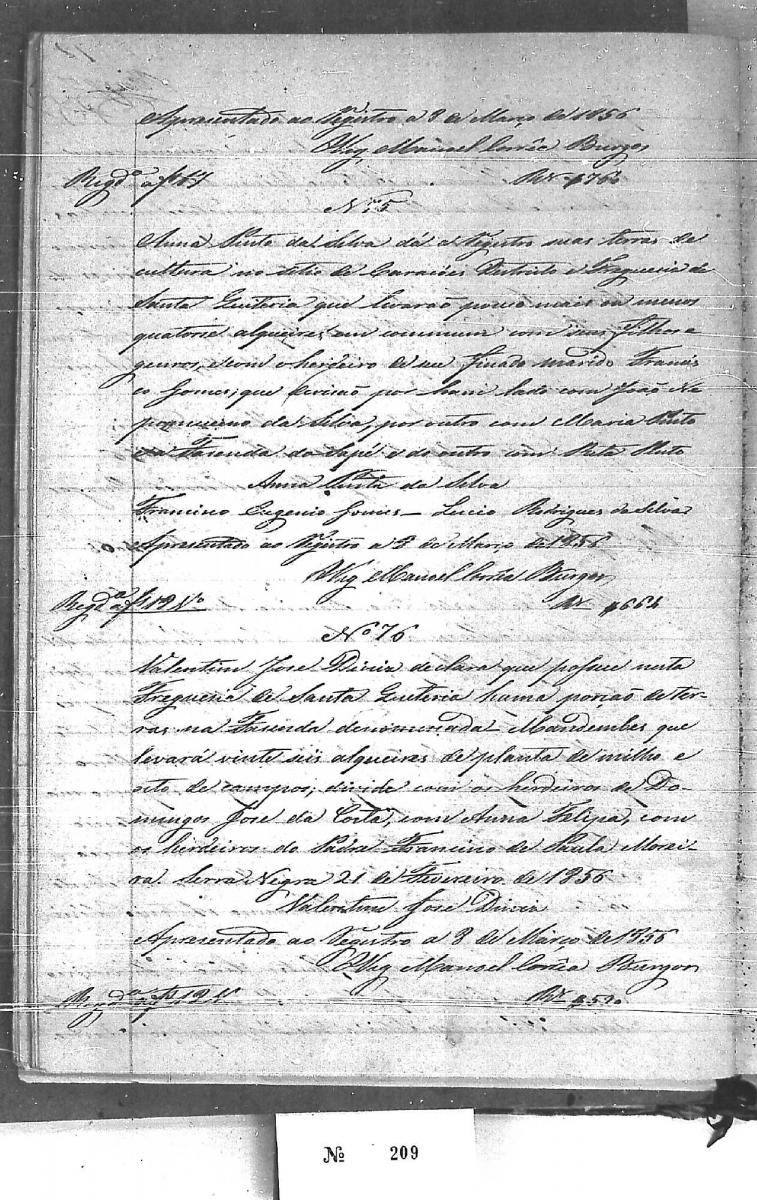 Apresentado ao Registro a 8 de Março de 1856
O Vigº Manoel Corrêa Burgos
Regdº a fl 17 Rs $760
Nº 75
Anna Pinto da Silva dá a Registro suas terras de
cultura no sitio de Districto e Freguesia de
Santa Quiteria que levarão pouco mais ou menos
quatorse alqueires, em commum com seus filhos e
genros, e com o herdeiro de seu finado marido Francis
co Gomes; que divisão por hum lado com João Ne
pomuceno da Silva, por outro com Maria Pinto
da Fazenda do Sapé e do outro com Rita Pinto
Anna Pinta da Silva
Francisco Eugenio Gomes - Lucio Rodrigues da Silva
Apresentado ao Registro a 8 de Março de 1856
O Vigº Manoel Corrêa Burgos
Regdª a fl 19 vº Rs $664
Nº 76
Valentim Jose declara que possue nesta
Freguesia de Santa Quiteria huma porção de ter
ras na Fazenda denominada Mandembes que
levará vinte seis alqueires de planta de milho e
oito de campos; divide com os herdeiros de Do-
mingos José da Costa, com Anna Felipa, com
os herdeiros do Padre Francisco de Paula Morei-
ra. Serra Negra 21 de Fevereiro de 1856
Valentim Jose
Apresentado ao Registro a 8 de Março de 1856
O Vigº Manoel Corrêa Burgos
Regdª a fl 19 vº Rs $520
№ 209